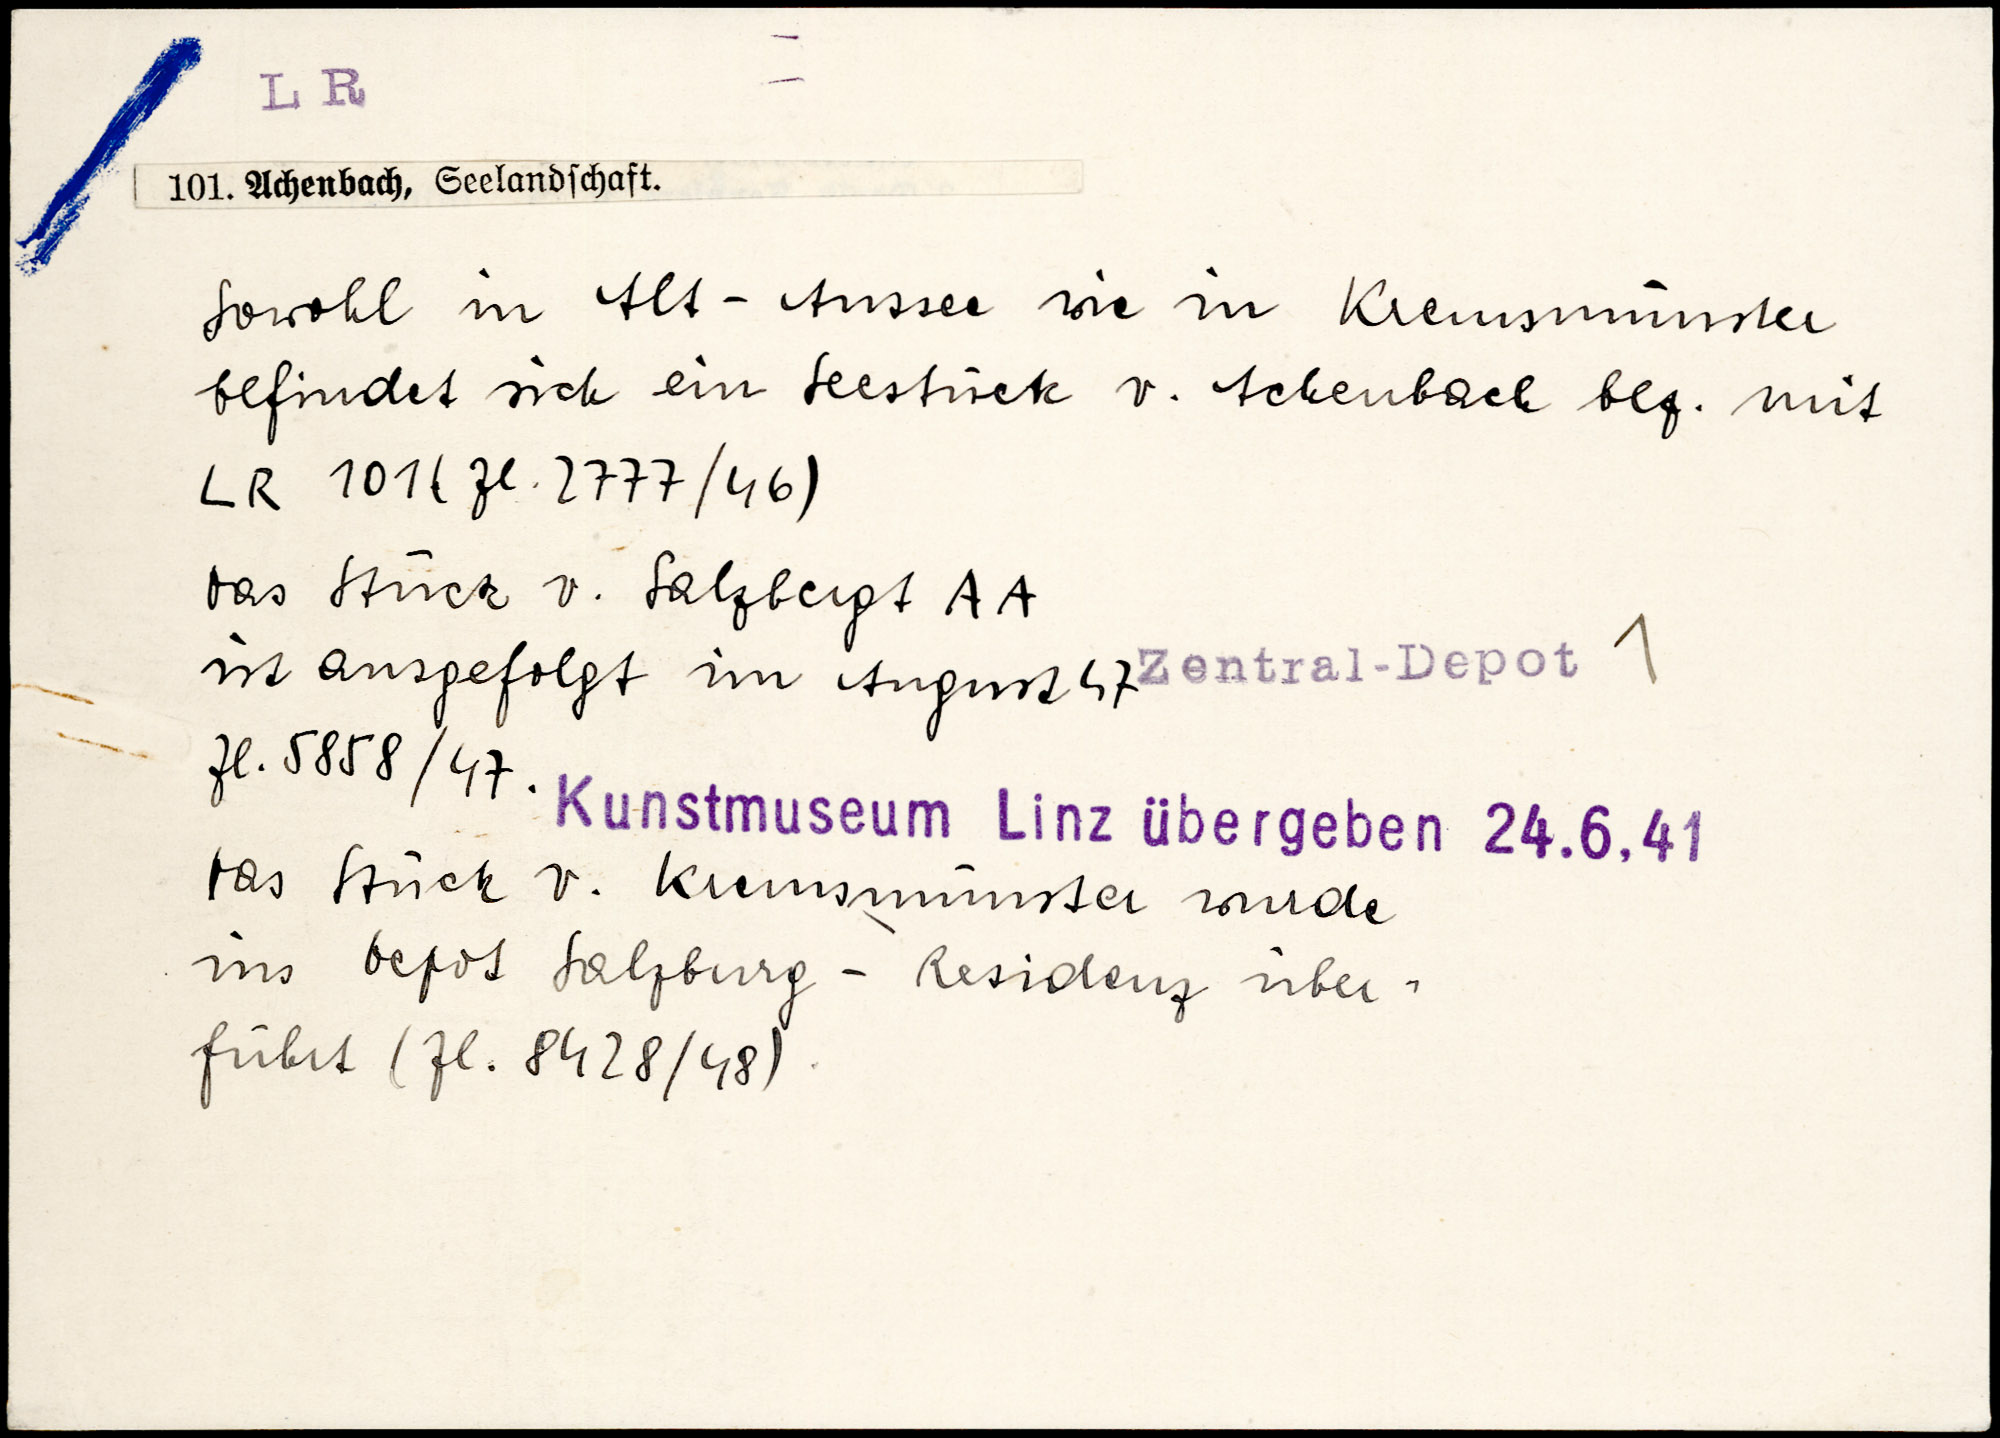 L R
101. Achenbach, Seelandschaft.
Sowohl in Alt-Aussee wie in Kremsmünster
befindet sich ein Seestück v. Achenbach bez. mit
LR 101 (Zl. 2777/46)
Das Stück v. Salzbergt AA
ist ausgefolgt im August 47
Zentral-Depot 1
Zl. 5858/47.
Kunstmuseum Linz übergeben 24.6.41
Das Stück v. Kremsmünster wurde
ins Depot Salzburg - Residenz über-
führt (Zl. 8428/48).